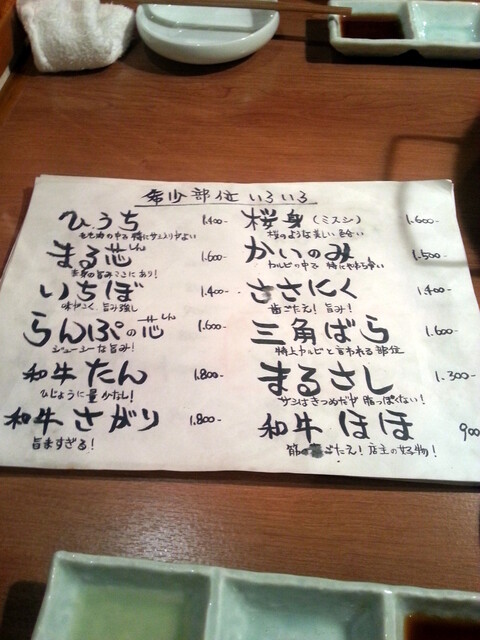 希少部位いろいろ
ひうち 1.400-
もも肉の中で特にサシ入りがよい
まる芯しん 1.600-
赤身の旨みここにあり!
いちぼ 1.400-
味がこく、旨み強し
らんぷの芯しん 1.600-
ジューシーな旨み!
和牛たん 1.800-
ひじょうに量少なし!
和牛さがり 1.800-
旨ますぎる!
桜身(ミスジ) 1.600-
桜のような美しい色合い
かいのみ 1.500-
カルビの中で特にやわらかい
ささにく 1.400-
歯ごたえ!旨み!
三角ばら 1.600-
特上カルビと言われる部位
まるさし 1.300-
サシはきつめだが脂っぽくない!
和牛ほほ 900
筋の ごたえ!店主の好物!